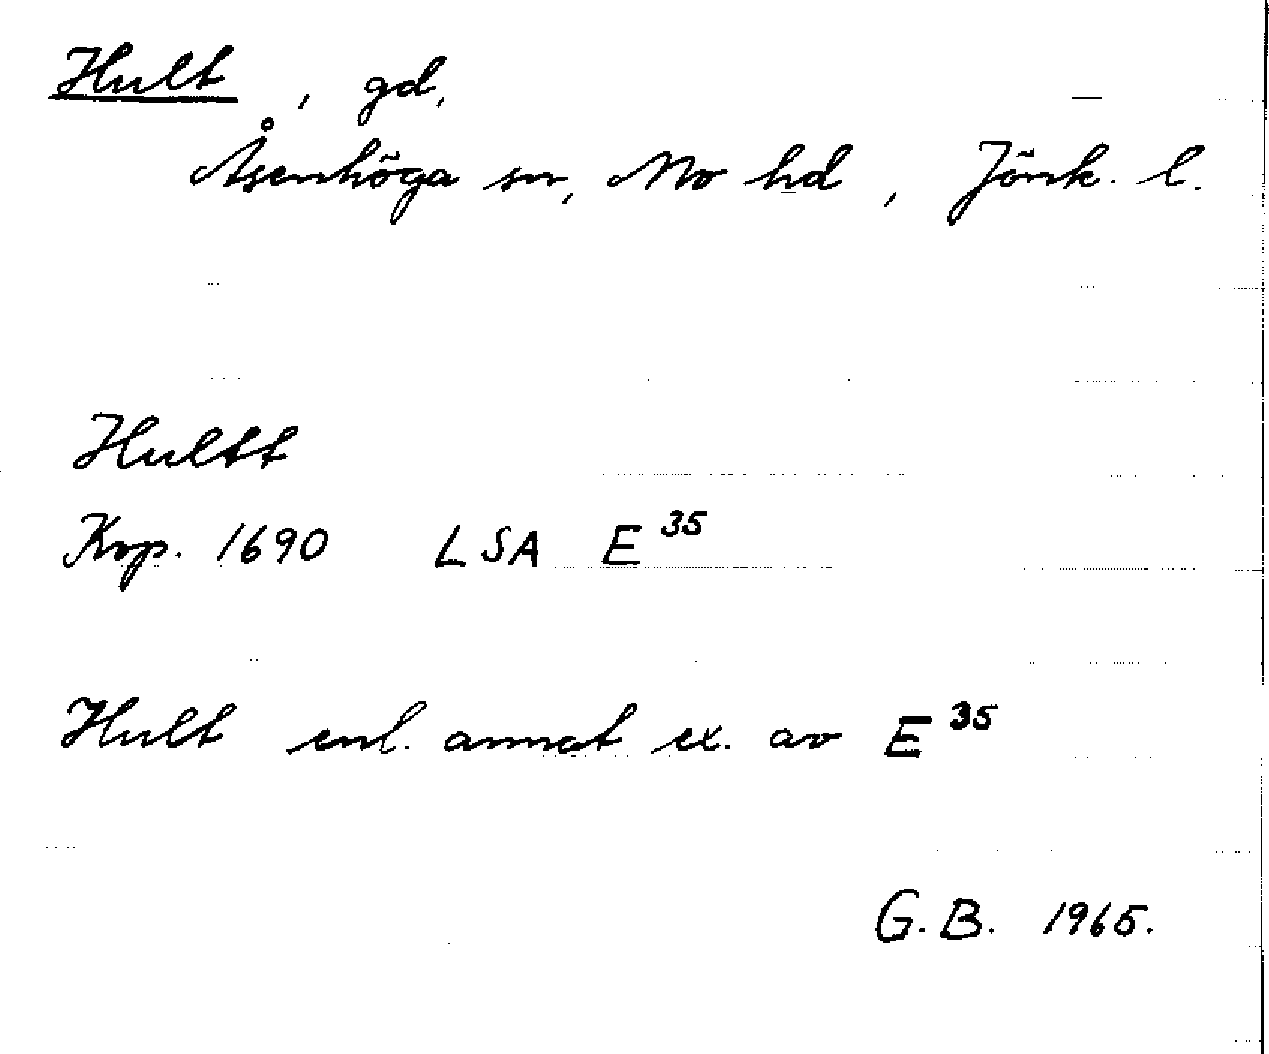 Hult, gd,
Åsenhöga sn, Mo hd, Jönk. l.
Hultt
Kop. 1690 LSA E 35
Hult enl. annat ex. av E 35
G. B. 1965.